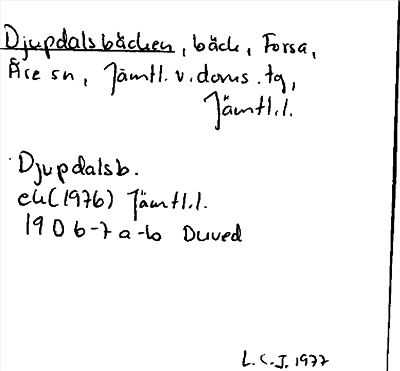 Djupdalsbäcken, bäck, Forsa,
Åre sn, Jämtl. v. doms. tg,
Jämtl.l.
Djupdalsb.
ek (1976) Jämtl.l.
19 D 6-7 a-b Duved
L.C.J. 1977